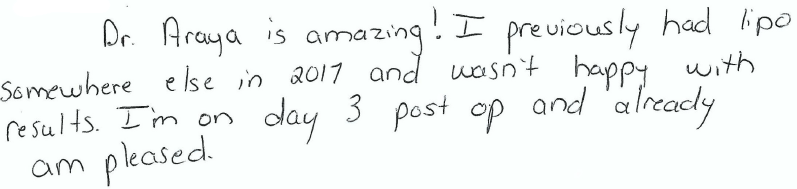 Dr. Araya is amazing! I previously had lipo
somewhere else in 2017 and wasn't happy with
results. I'm on day 3 post op and already
am pleased.